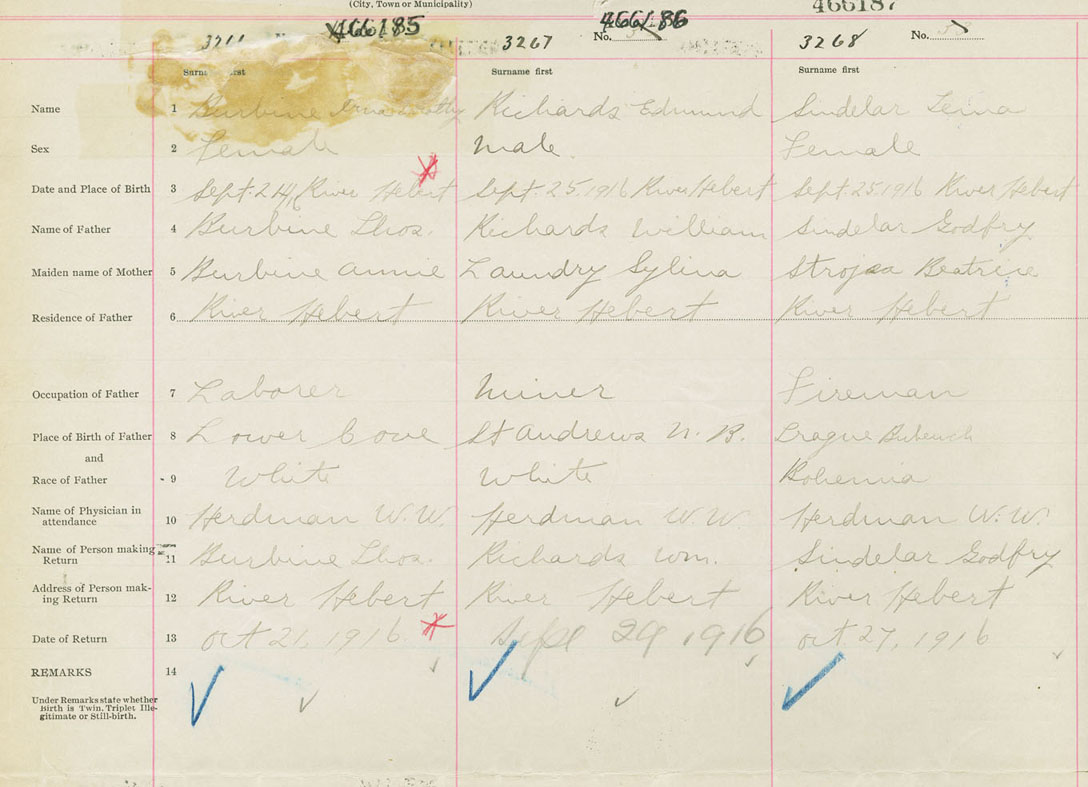 (City, Town or Municipality)
466185 466186 466187
3267 No. 3268 No.
Surname first Surname first Surname first
Name 1 Burbine Richards Edmund Sindelar Lena
Sex 2 Female Male Female
Date and Place of Birth 3 Sept. 24, River Hebert Sept. 25, 1916 River Hebert Sept. 25, 1916 River Hebert
Name of Father 4 Burbine Thos. Richards William Sindelar Godfry
Maiden name of Mother 5 Burbine Annie Laundry Sylina Beatrice
Residence of Father 6 River Hebert River Hebert River Hebert
Occupation of Father 7 Laborer Miner Fireman
Place of Birth of Father 8 Lower Cove St Andrews N. B. Prague
and
Race of Father 9 White White Bohemia
Name of Physician in
attendance 10 Herdman W. W. Herdman W. W. Herdman W. W.
Name of Person making
Return 11 Burbine Thos. Richards Wm. Sindelar Godfry
Address of Person mak-
ing Return 12 River Hebert River Hebert River Hebert
Date of Return 13 Oct 21, 1916 Sept 29 1916 Oct 27, 1916
REMARKS 14
Under Remarks state whether
Birth is Twin, Triplet Ille-
gitimate or Still-birth.